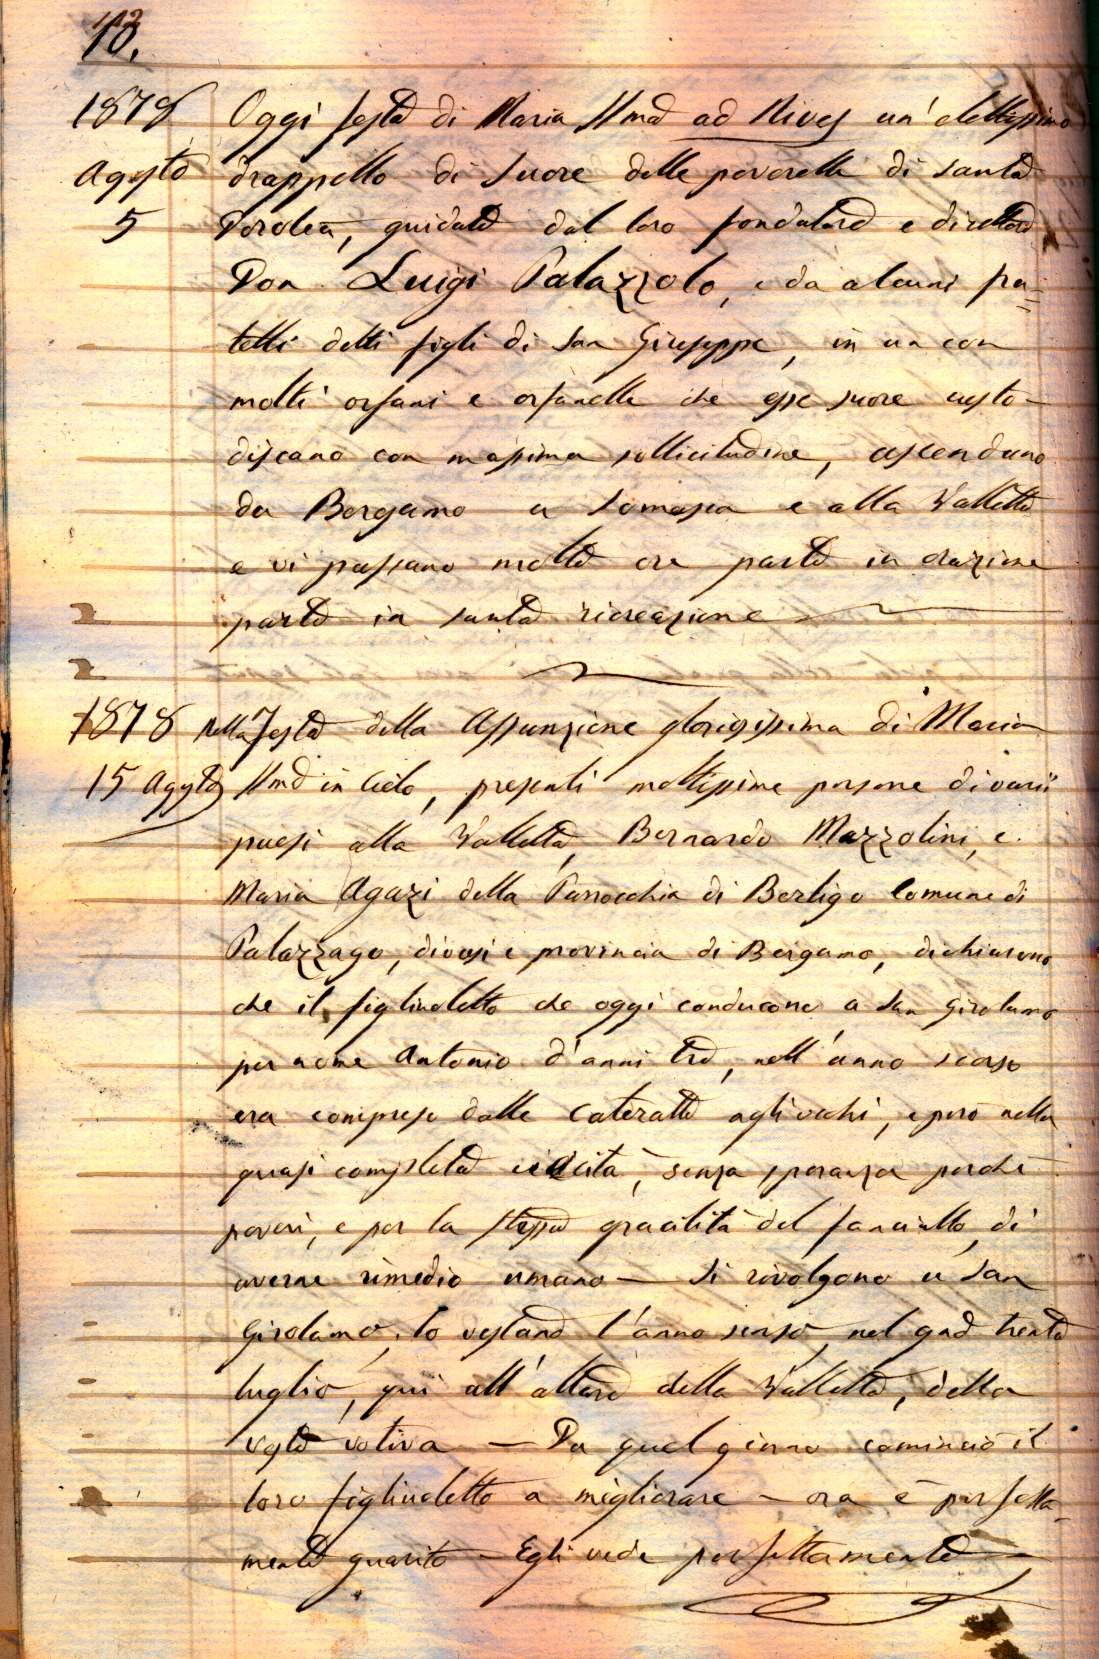 13.
1878 Oggi festa di Maria SSma ad Nives un' elettissimo
Agosto drappello di Suore delle poverelle di santa
5 Dorotea, guidate dal loro fondatore e direttore
Don Luigi Palazzolo, e da alcuni fra=
telli detti figli di San Giuseppe, in un con
molti orfani e orfanelle che esse suore custo-
discano con massima sollicitudine, ascendono
da Bergamo a Somasca e alla Valletta
e vi passano molte ore parte in orazione
parte in santa ricreazione
1878 Nella Festa della Assunzione gloriosissima di Maria
15 Agosto SSma in Cielo, presenti moltissime persone di varii
paesi alla Valletta, Bernardo Mazzolini, e
Maria Agazi della Parrocchia di Borligo Comune di
Palazzago, diocesi e provincia di Bergamo, dichiarono
che il figliuoletto che oggi conducono a San Girolamo
per nome Antonio d'anni tre, nell'anno scorso
era compreso dalle cateratte agli occhi, e però nella
quasi completa cicità, senza speranza perchè
poveri, e per la stessa gracilità del fanciullo, di
averne rimedio umano — Si rivolgono a San
Girolamo, lo vestano l'anno scorso, nel trenta
luglio, qui all'altare della Valletta, della
veste votiva — Da quel giorno cominciò il
loro figliuoletto a migliorare — ora è perfetta-
mente guarito — Egli vede perfettamente —